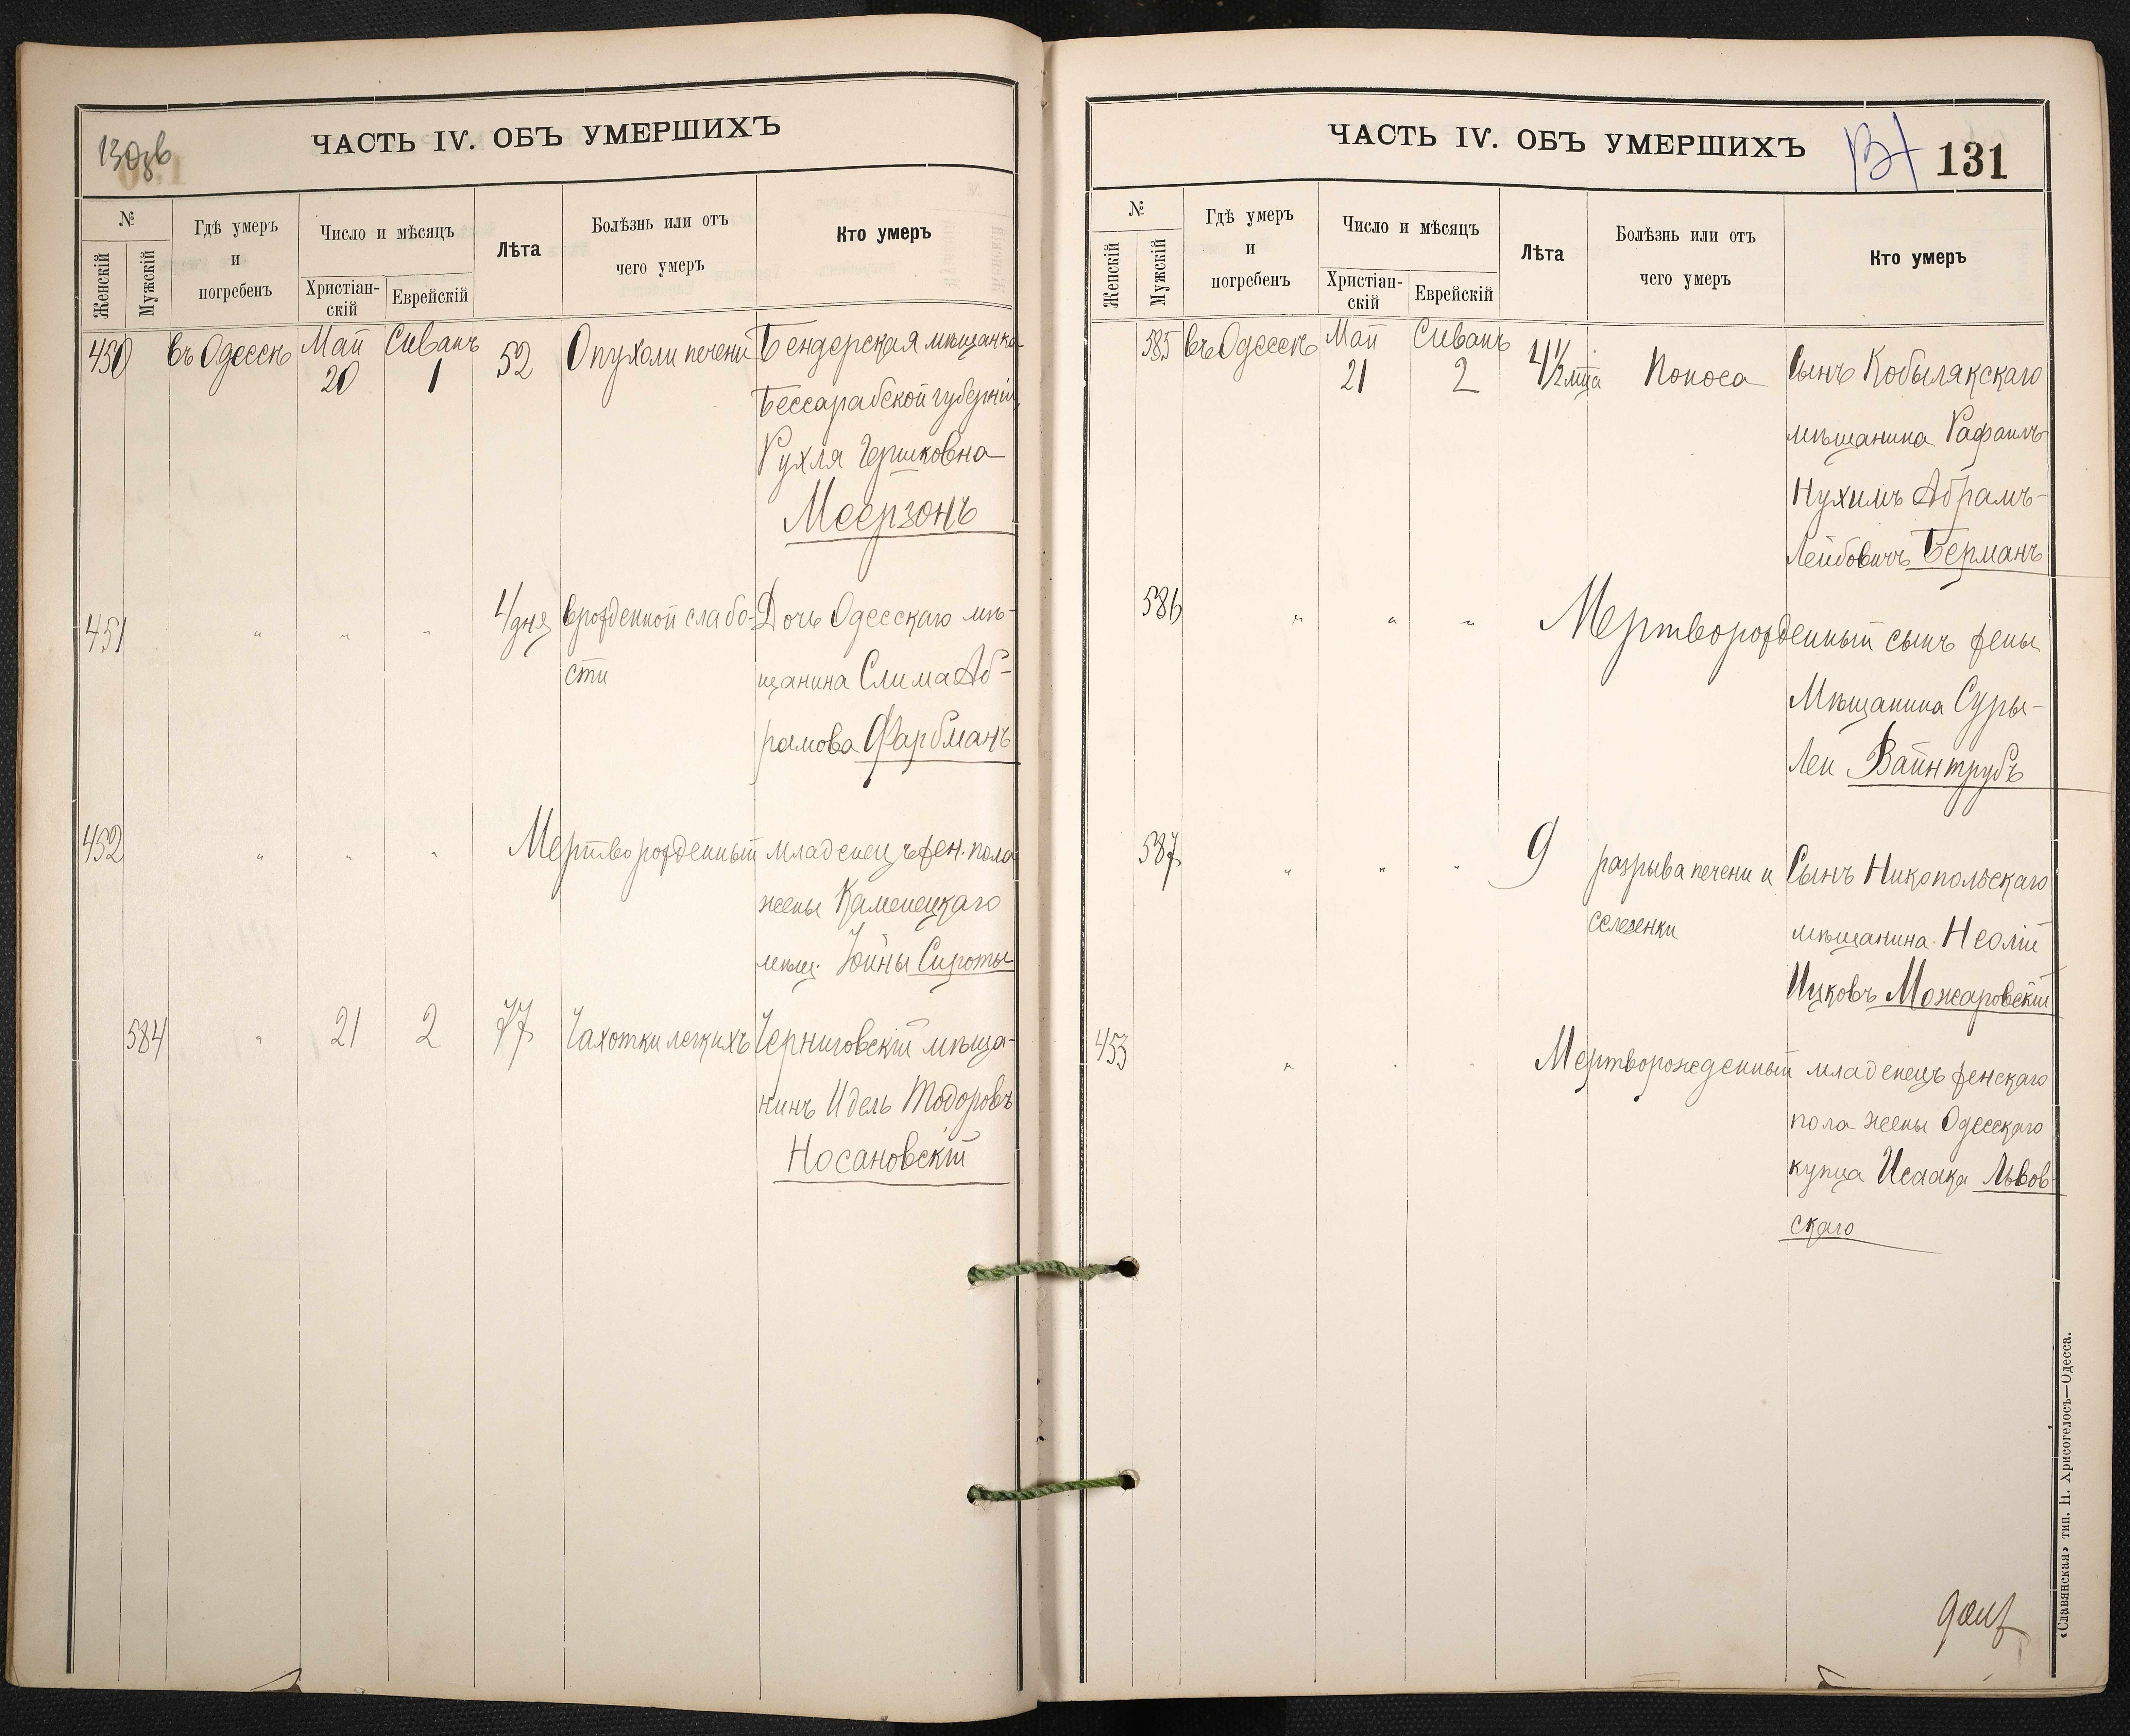 130зв
ЧАСТЬ IV. ОБЪ УМЕРШИХЪ
№
Женскій
Мужскій
Гдѣ умеръ
и
погребенъ
Число и мѣсяцъ
Христіан-
скій
Еврейскій
Лѣта
Болѣзнь или отъ
чего умеръ
Кто умеръ
450 въ Одессѣ Май Сиванъ 52 Опухоли печени Бендерская мѣщанка
20 1 Бессарабской губерніи
Рухля Гершковна
Меерзонъ
451 " " " 4 дня врожденной слабо- Дочь Одесскаго мѣ-
сти щанина Слима Аб-
рамова Фарбманъ
452 " " " Мертворожденный младенецъ жен. пола
жены Каменецкаго
мѣщ. Юйны Сироты
584 " 21 2 77 Чахотки легкихъ Черниговскій мѣща-
нинъ Идель Тодоровъ
Носановскій
ЧАСТЬ IV. ОБЪ УМЕРШИХЪ
131
№
Женскій
Мужскій
Гдѣ умеръ
и
погребенъ
Число и мѣсяцъ
Христіан-
скій
Еврейскій
Лѣта
Болѣзнь или отъ
чего умеръ
Кто умеръ
585 въ Одессѣ Май Сиванъ 4½ мца Поноса Сынъ Кобылякскаго
21 2 мѣщанина Рафаилъ
Нухимъ Абрамъ-
Лейбовичъ Берманъ
586 " " " Мертворожденный сынъ жены
Мѣщанина Суры-
Леи Вайнтрубъ
587 " " " 9 разрыва печени и Сынъ Никопольскаго
селезенки мѣщанина Неолій
Ицковъ Можаровскій
453 " " " Мертворожденный младенецъ женскаго
пола жены Одесскаго
купца Исаака Львов-
скаго
«Славянская» тип. Н. Хрисогелосъ—Одесса.